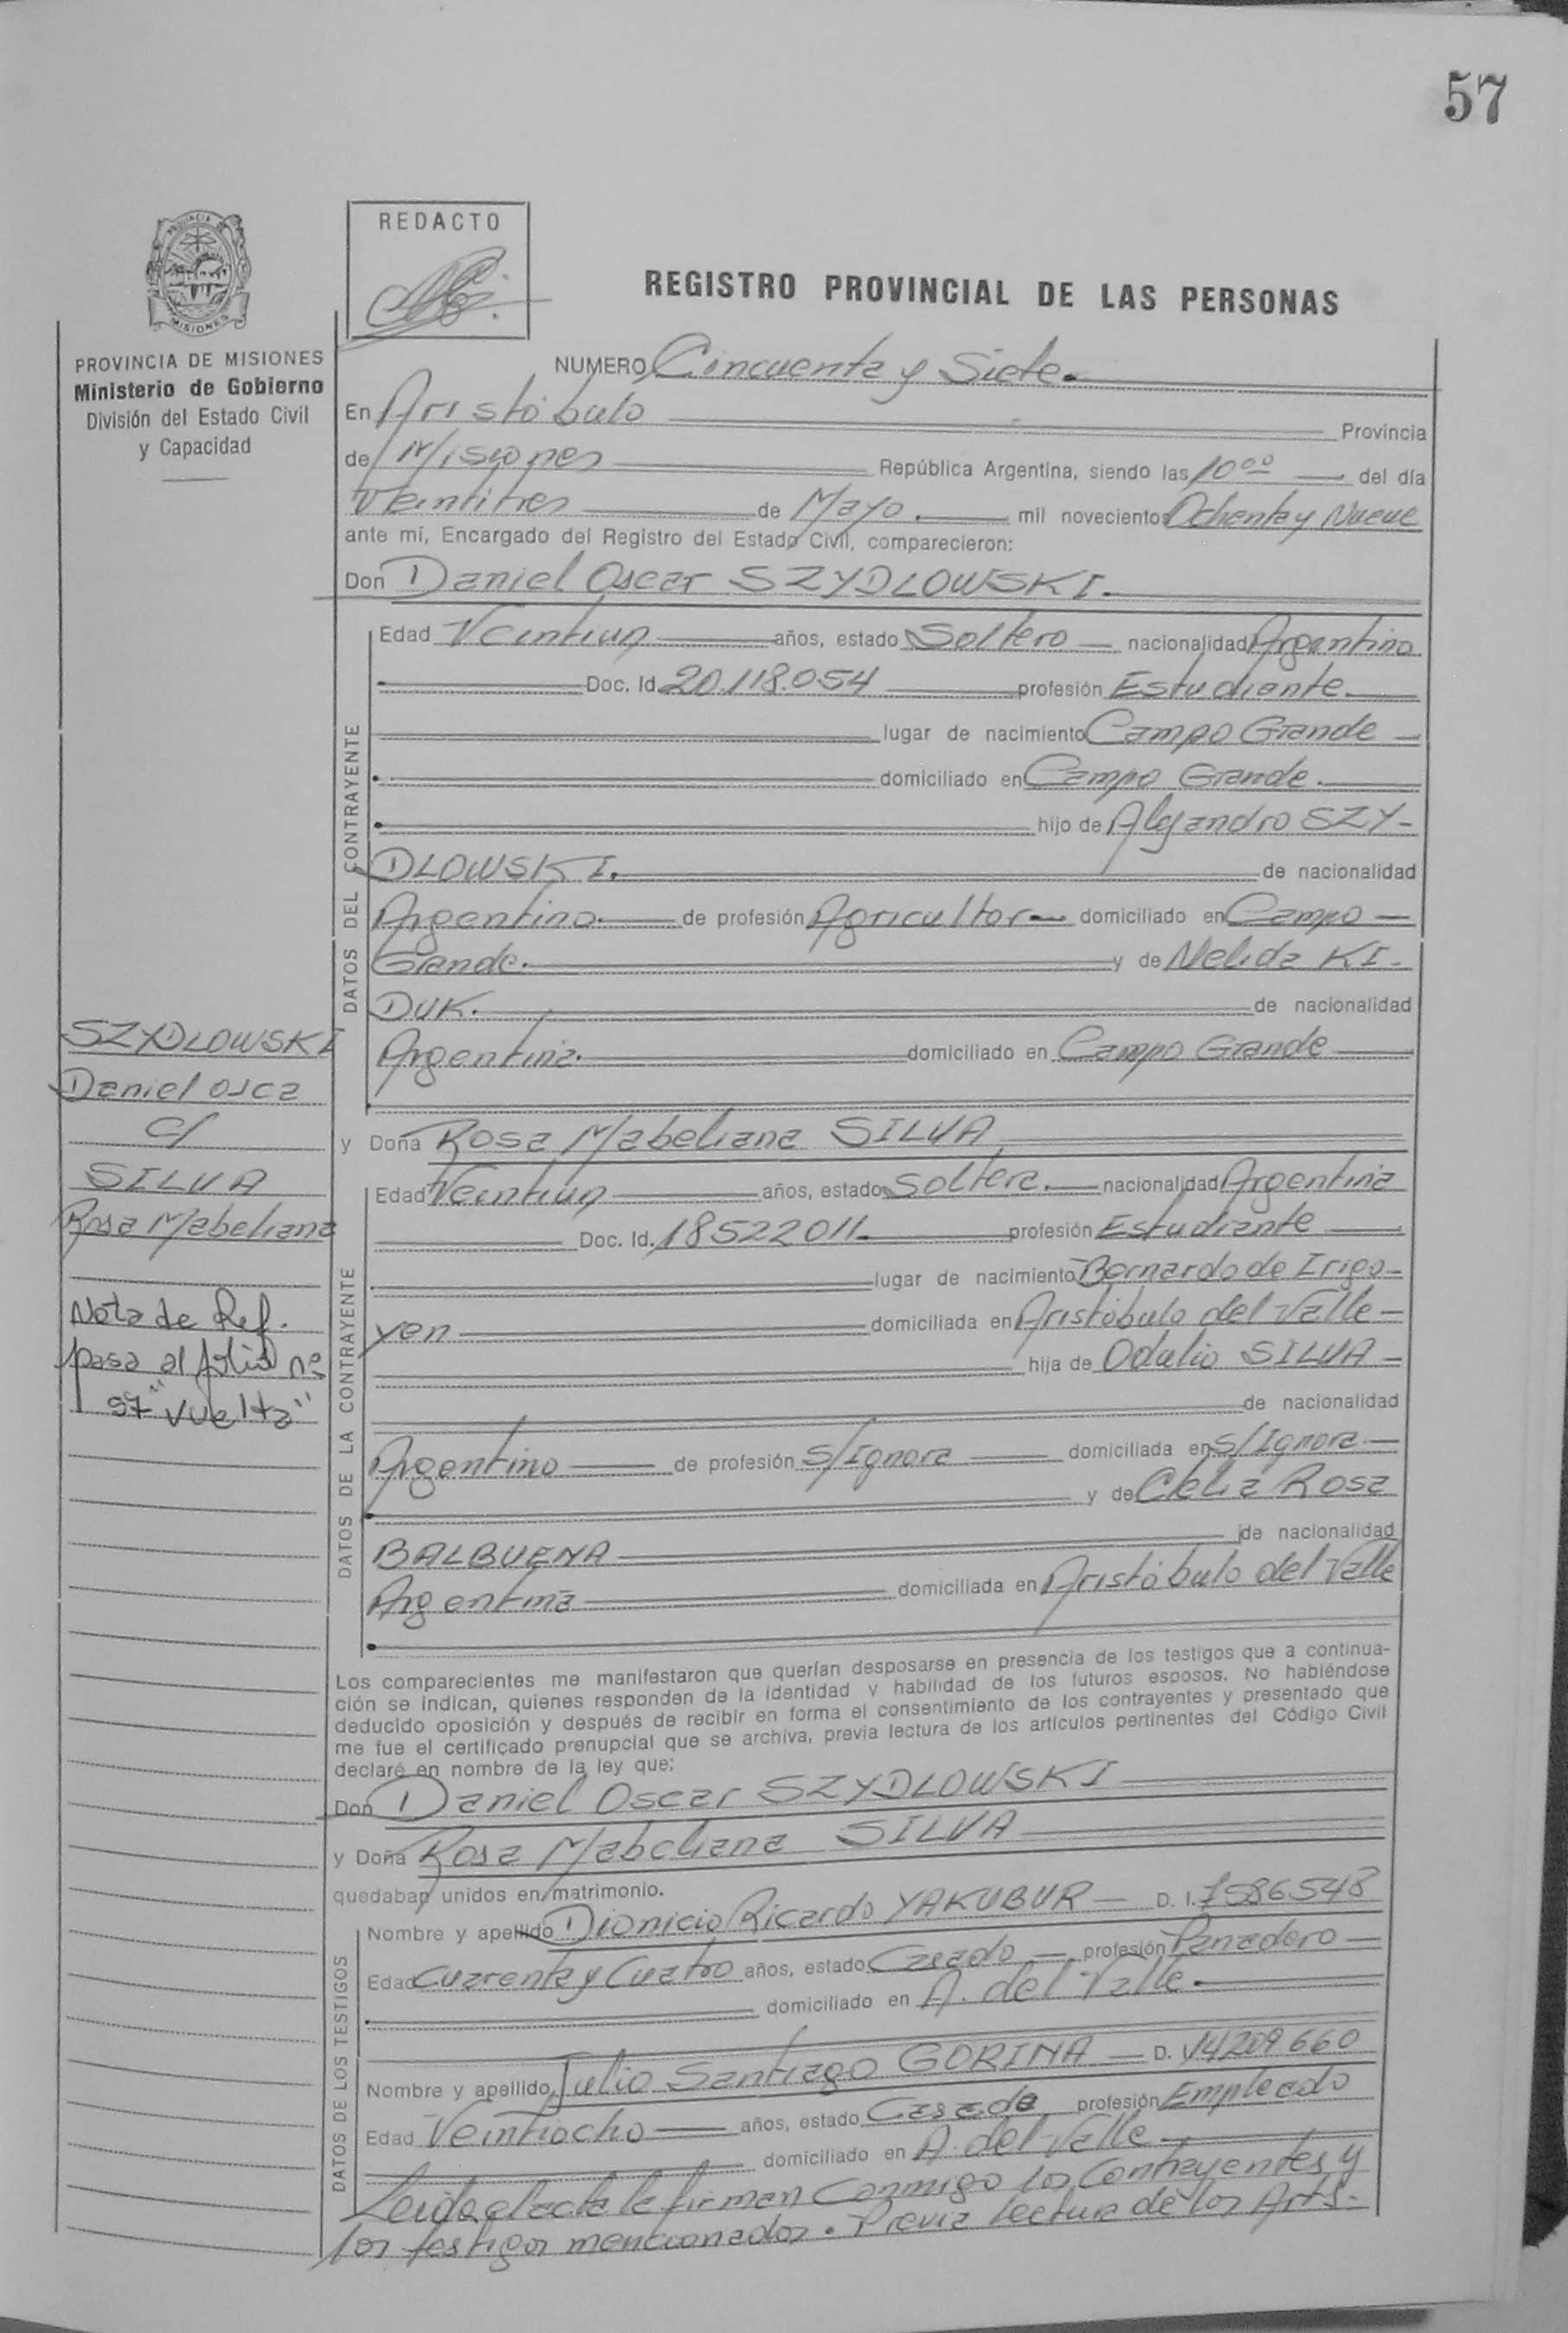 57
REDACTO
PROVINCIA DE MISIONES
Ministerio de Gobierno
División del Estado Civil
y Capacidad
MISIONES
REGISTRO PROVINCIAL DE LAS PERSONAS
NUMERO Cincuenta y Siete.
En Aristóbulo Provincia
de Misiones República Argentina, siendo las 10 00 del día
Veintitres de Mayo. mil novecientos Ochenta y Nueve
ante mí, Encargado del Registro del Estado Civil, comparecieron:
Don Daniel Oscar SZYDLOWSKI.
DATOS DEL CONTRAYENTE
Edad Veintiun años, estado Soltero nacionalidad Argentino
Doc. Id. 20.118.054 profesión Estudiante.
lugar de nacimiento Campo Grande
domiciliado en Campo Grande.
hijo de Alejandro SZY-
DLOWSKI. de nacionalidad
Argentino. de profesión Agricultor domiciliado en Campo
Grande. y de Nelida KI-
DUK. de nacionalidad
Argentina. domiciliado en Campo Grande
y Doña Rosa Mabeliana SILVA
DATOS DE LA CONTRAYENTE
Edad Veintiun años, estado Soltera. nacionalidad Argentina
Doc. Id. 18522011. profesión Estudiante
lugar de nacimiento Bernardo de Irigo-
yen domiciliada en Aristóbulo del Valle
hija de Odulio SILVA
de nacionalidad
Argentino de profesión S/Ignora domiciliada en S/Ignora
y de Celia Rosa
BALBUENA de nacionalidad
Argentina domiciliada en Aristóbulo del Valle
SZYDLOWSKI
Daniel Osca
c/
SILVA
Rosa Mabeliana
Nota de Ref.
pasa al folio nº
97 "Vuelta"
Los comparecientes me manifestaron que querían desposarse en presencia de los testigos que a continua-
ción se indican, quienes responden de la identidad y habilidad de los futuros esposos. No habiéndose
deducido oposición y después de recibir en forma el consentimiento de los contrayentes y presentado que
me fue el certificado prenupcial que se archiva, previa lectura de los artículos pertinentes del Código Civil
declaré en nombre de la ley que:
Don Daniel Oscar SZYDLOWSKI
y Doña Rosa Mabeliana SILVA
quedaban unidos en matrimonio.
DATOS DE LOS TESTIGOS
Nombre y apellido Dionicio Ricardo YAKUBUR D. I. 7586548
Edad Cuarenta y Cuatro años, estado Casado profesión Panadero
domiciliado en A. del Valle.
Nombre y apellido Julio Santiago GORINA D. 14209660
Edad Veintiocho años, estado Casado profesión Empleado
domiciliado en A. del Valle.
Leida el acta la firman Conmigo los Contrayentes y
los testigos mencionados. Previa lectura de los Arts.